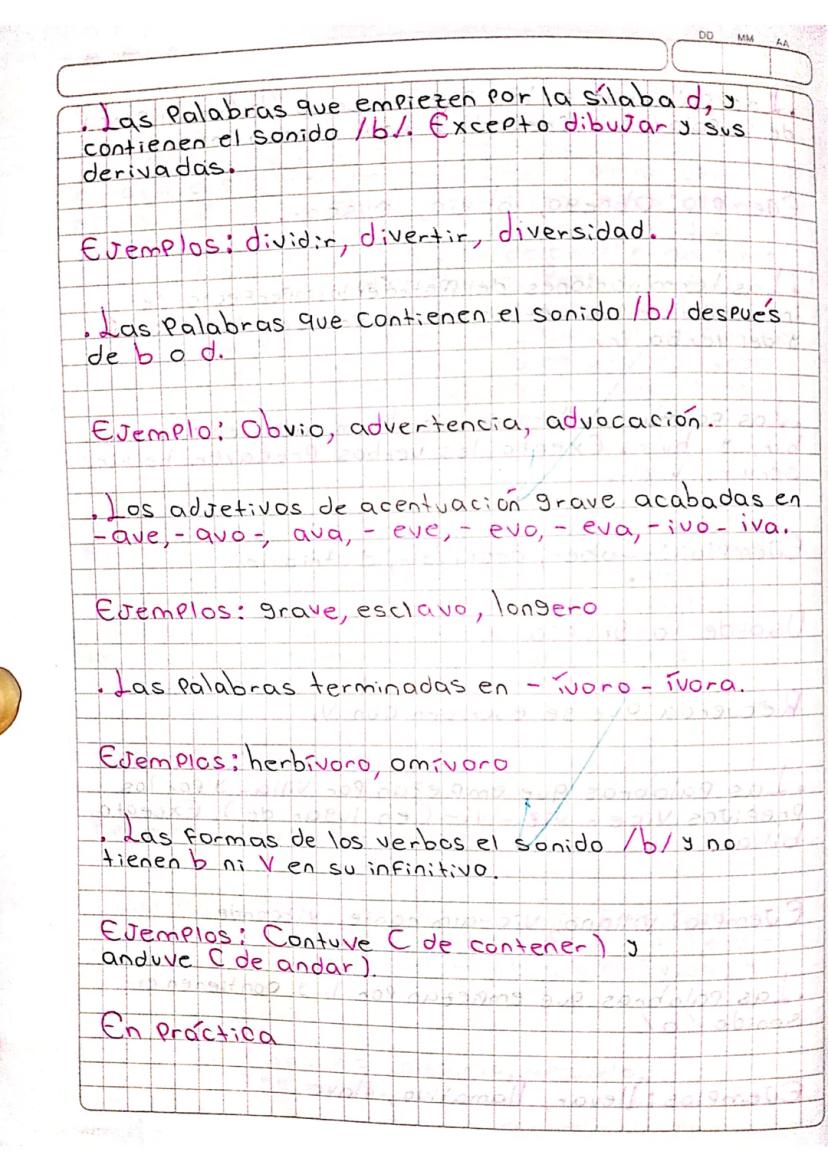 DD MM AA
. Las Palabras que empiezen por la sílaba d, y
contienen el sonido /b/. Excepto dibujar y sus
derivadas.
Ejemplos: dividir, divertir, diversidad.
. Las Palabras que contienen el sonido /b/ después
de b o d.
Ejemplo: Obvio, advertencia, advocación.
. Los adjetivos de acentuación grave acabadas en
-ave, - avo -, ava, - eve, - evo, - eva, - ivo - iva.
Ejemplos: grave, esclavo, longero
. Las Palabras terminadas en - ívoro - ívora.
Ejemplos: herbívoro, omívoro
. Las formas de los verbos el sonido /b/ y no
tienen b ni V en su infinitivo.
Ejemplos: Contuve C de contener) y
anduve C de andar).
En Práctica